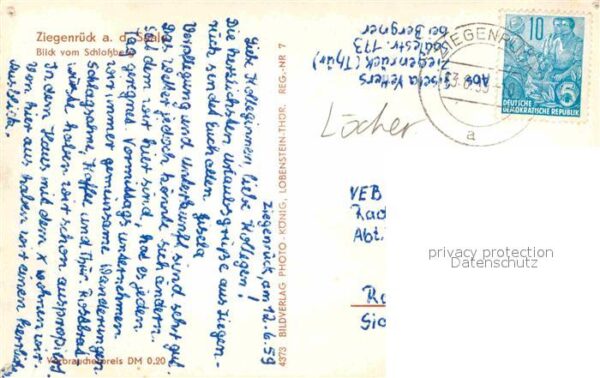 Ziegenrück a. d. Saale
Blick vom Schloßberg
Ziegenrück, am 12.6.59
Liebe Kolleginnen, liebe Kollegen!
Die herzlichsten Urlaubsgrüße aus Ziegen-
rück, sendet Euch allen
Gisela
Verpflegung und Unterkunft sind sehr gut.
Das Wetter jedoch könnte sich ändern.
Seit dem wir hier sind, hat es jeden
Tag geregnet. Vormittags unternehmen
wir immer gemeinsame Wanderungen.
Schlagsahne, Kaffee und Thür. Rostbrat-
würste haben wir schon ausprobiert.
In dem Haus mit dem x wohnen wir.
Von hier aus haben wir einen herrlichen
Ausblick.
Verbraucherpreis DM 0,20
4373 BILDVERLAG PHOTO-KÖNIG, LOBENSTEIN-THÜR. REG.-NR 7
Abs. Gisela Vetters
Ziegenrück (Thür)
Saalestr. 173
bei Bergner
Löcher
ZIEGENRÜCK
a
10
5
DEUTSCHE
DEMOKRATISCHE REPUBLIK
VEB
Rad
Abt.
privacy protection
Datenschutz